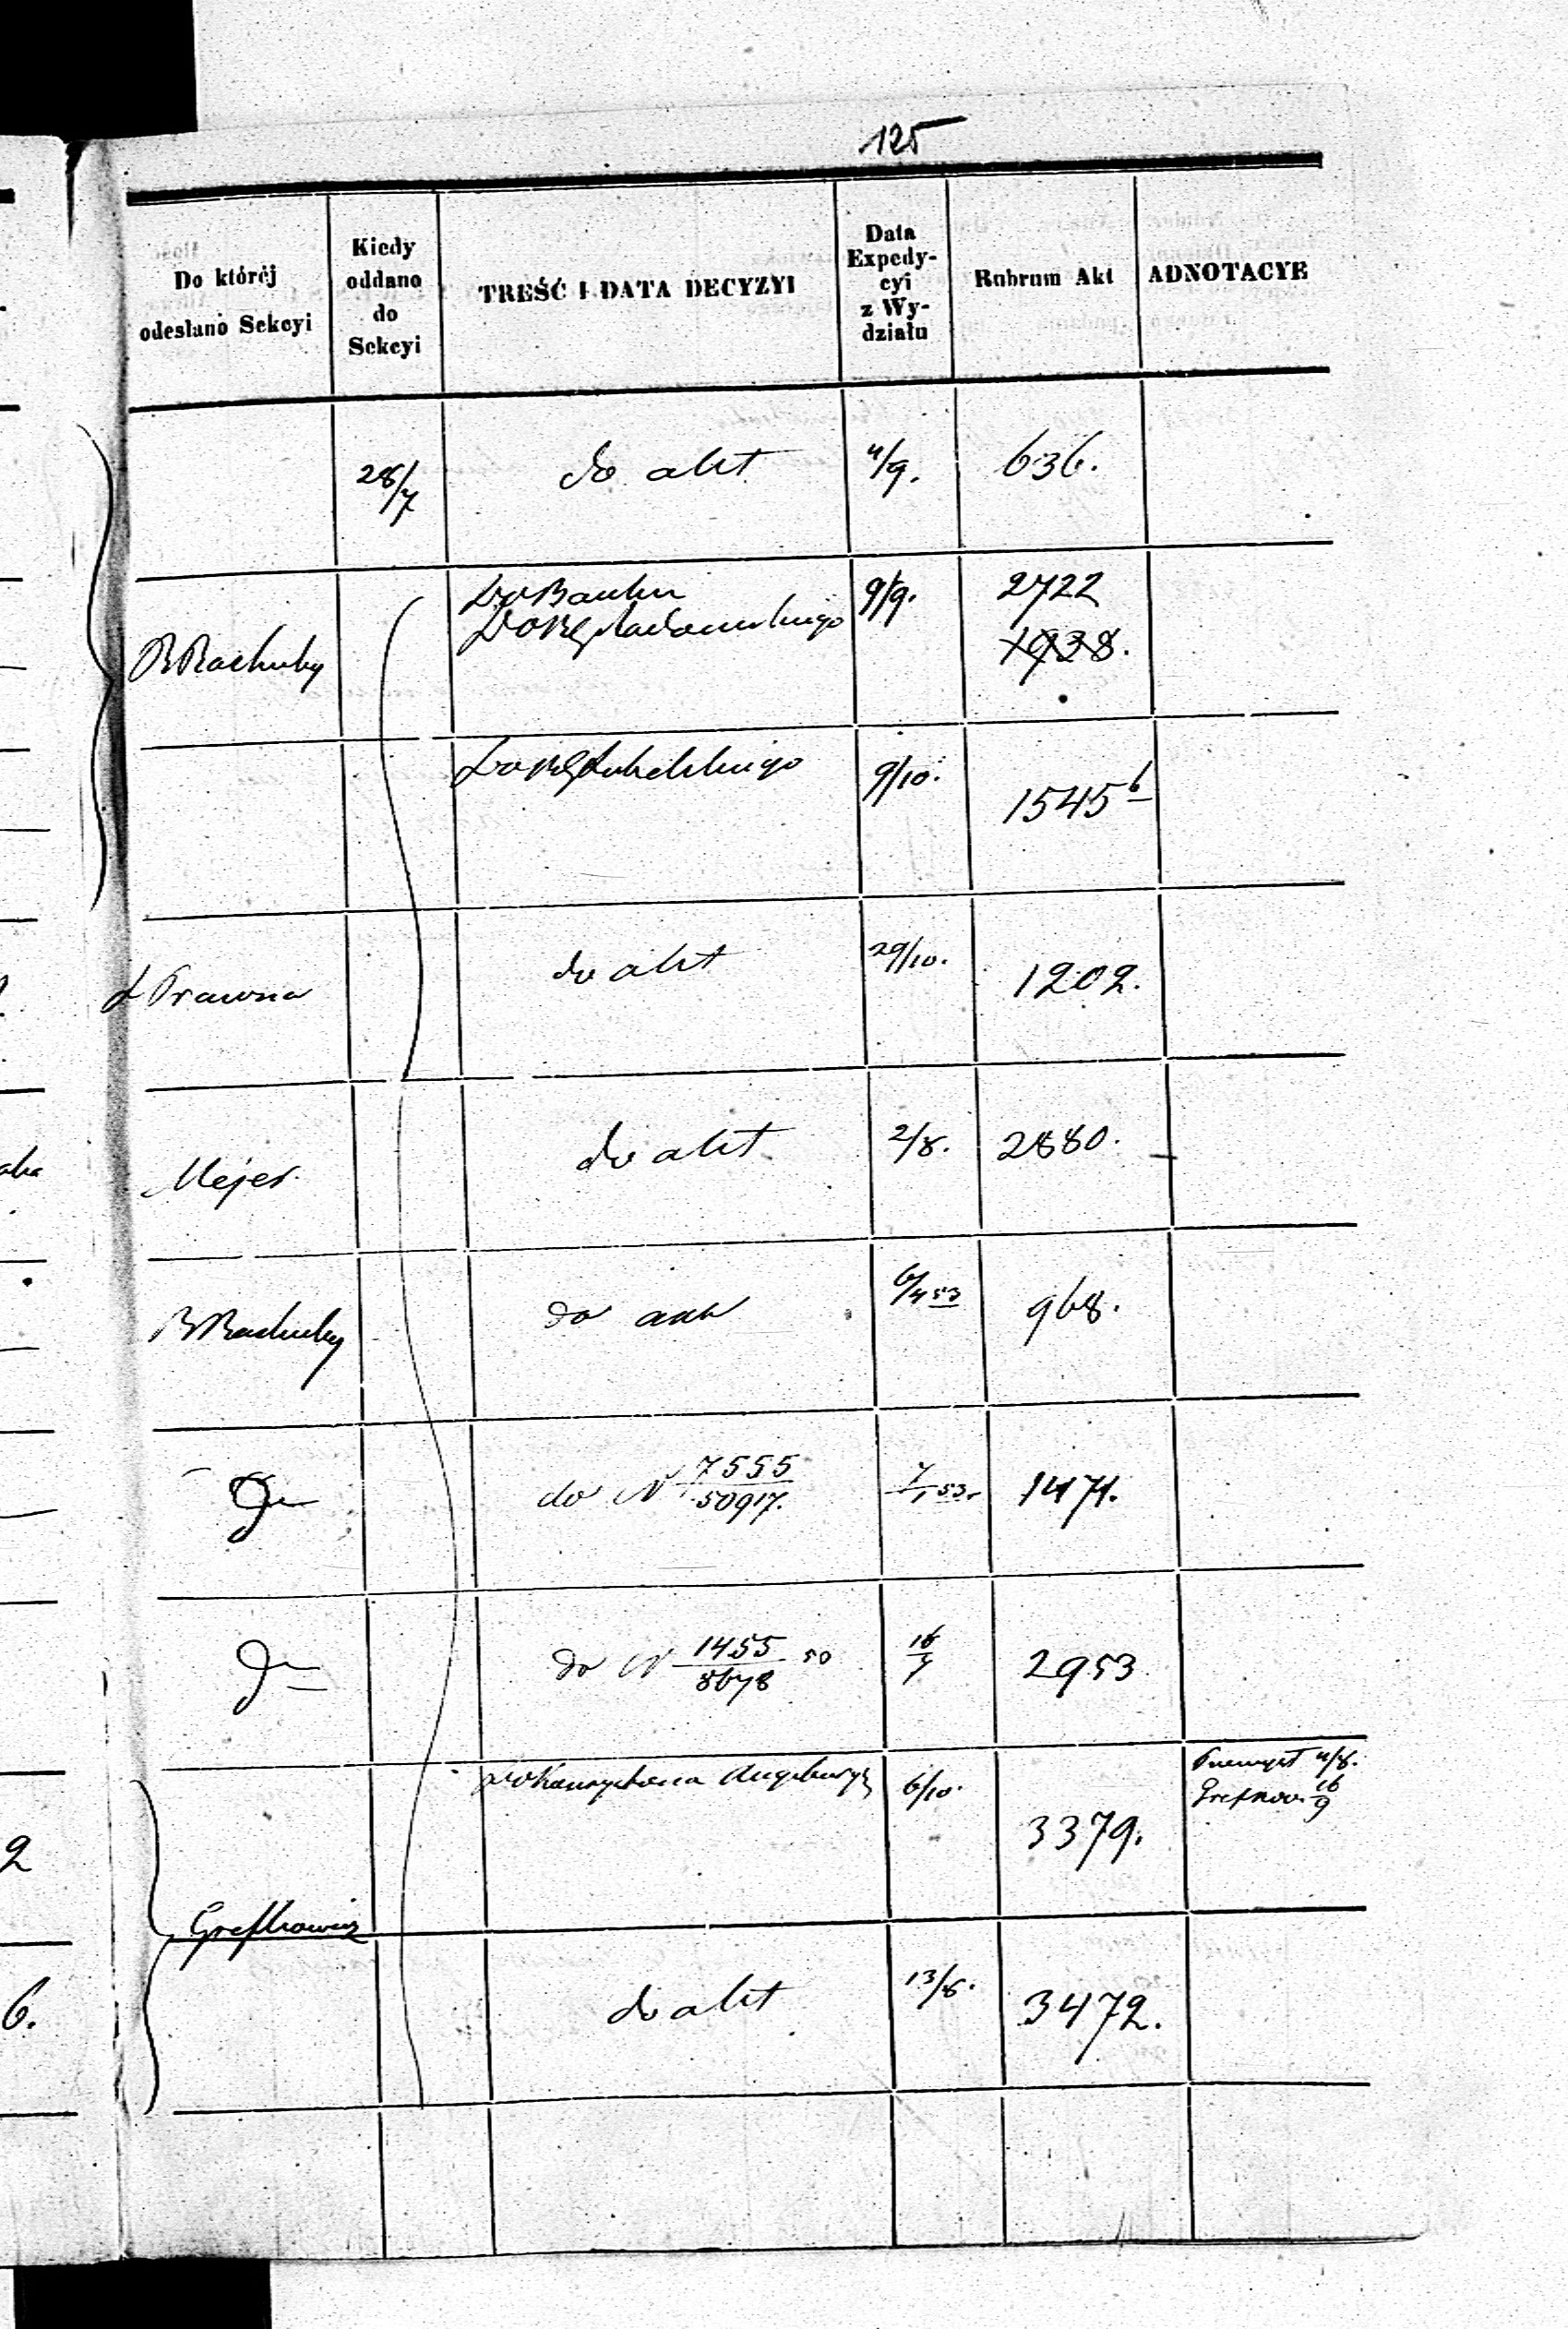 125
Do któréj odesłano Sekcyi
Kiedy oddano do Sekcyi
TREŚĆ I DATA DECYZYI
Data Expedycyi z Wydziału
Rubrum Akt
ADNOTACYE
28/7 do akt 4/9. 636.
B Rachuby Do Banku 9/9. 2722
Do RG Radomskiego 1938.
Do RG Lubelskiego 9/10. 1545 b
Prawna do akt 29/10. 1202.
Mejer. do akt 2/8. 2880.
B Rachuby do akt 6/4 53 968.
do N 7555/50917. 7/1 53. 1471.
do N 1455/8678 50 16/5 2953
6/10. 3379. 4/8.
16/9
Grefkowicz
do akt 13/8. 3472.
2
6.